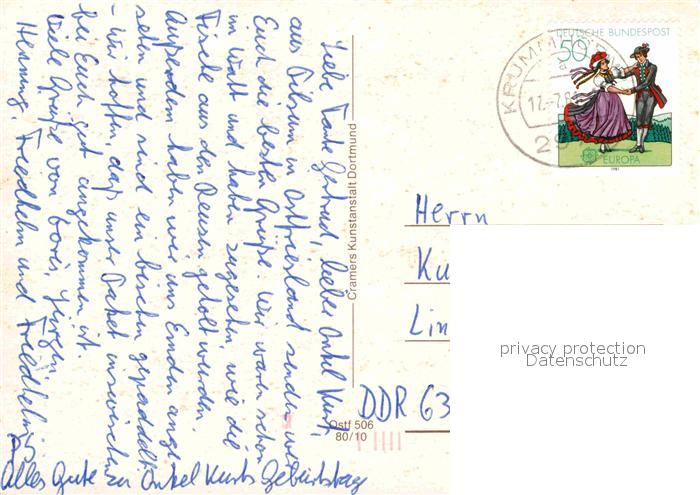 Liebe Tante Gertrud, lieber Onkel Kurt,
aus Dilsum in Ostfriesland senden wir
Euch die besten Grüße. Wir waren schon
im Watt und haben zugesehen, wie die
Fische aus den Reusen geholt wurden.
Außerdem haben wir uns Emden ange-
sehen und sind ein bischen gepaddelt.
- Wir hoffen, daß unser Paket inzwischen
bei Euch gut angekommen ist.
Viele Grüße von Doris, Jürgen,
Henning, Friedhelm und
PS.
Alles Gute zu Onkel Kurts Geburtstag
Cramers Kunstanstalt Dortmund
Ostf 506
80/10
DEUTSCHE BUNDESPOST
50
EUROPA
1981
KRUMMH
17.-7.8
Herrn
Ku
Lin
DDR 63
privacy protection
Datenschutz